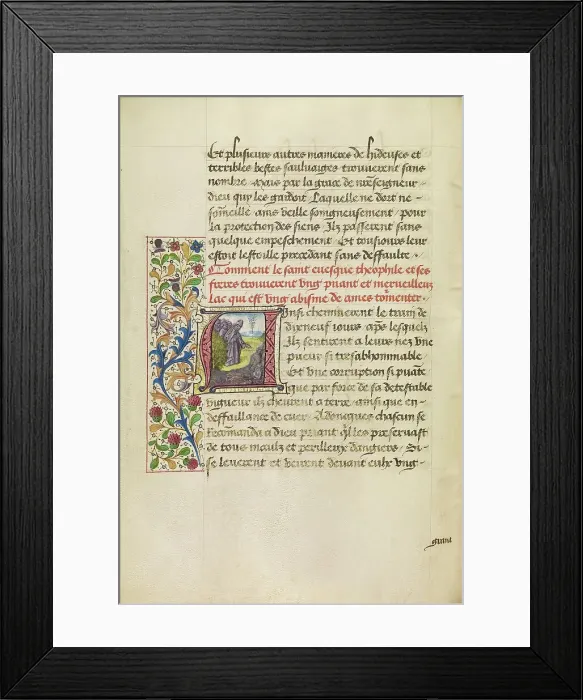 Et plusieurs autres manieres de hideuses et
terribles bestes sauluaiges trouuerent sans
nombre Mais par la grace de nreseigneur
dieu quy les gardoit Laquelle ne dort ne
sommeille ains veille songneusement pour
la protection des siens Ilz passerent sans
quelque empeschement Et tousiours leur
estoit lestoille precedant sans deffaulte
Comment le saint euesque theophile et ses
freres trouuerent vng puant et merueilleux
Lac qui est vng abisme de ames tormenter
Ainsi cheminerent le train de
dixneuf iours apres lesquelz
Ilz sentirent a leurs nez vne
pueur si tresabhommable
Et vne corruption si puate
que par force de sa detestable
vigueur ilz cheurent a terre ainsi que en
deffaillance de cuer Adoncques chascun se
recomanda a dieu priant qlles preseruast
de tous maulz et perilleux dangiers Si
se leuerent et veirent deuant eulx vng